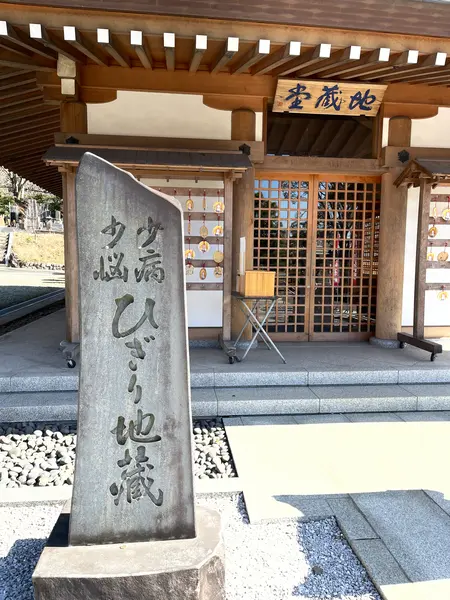 地蔵堂
少病
少悩
ひぎり地蔵